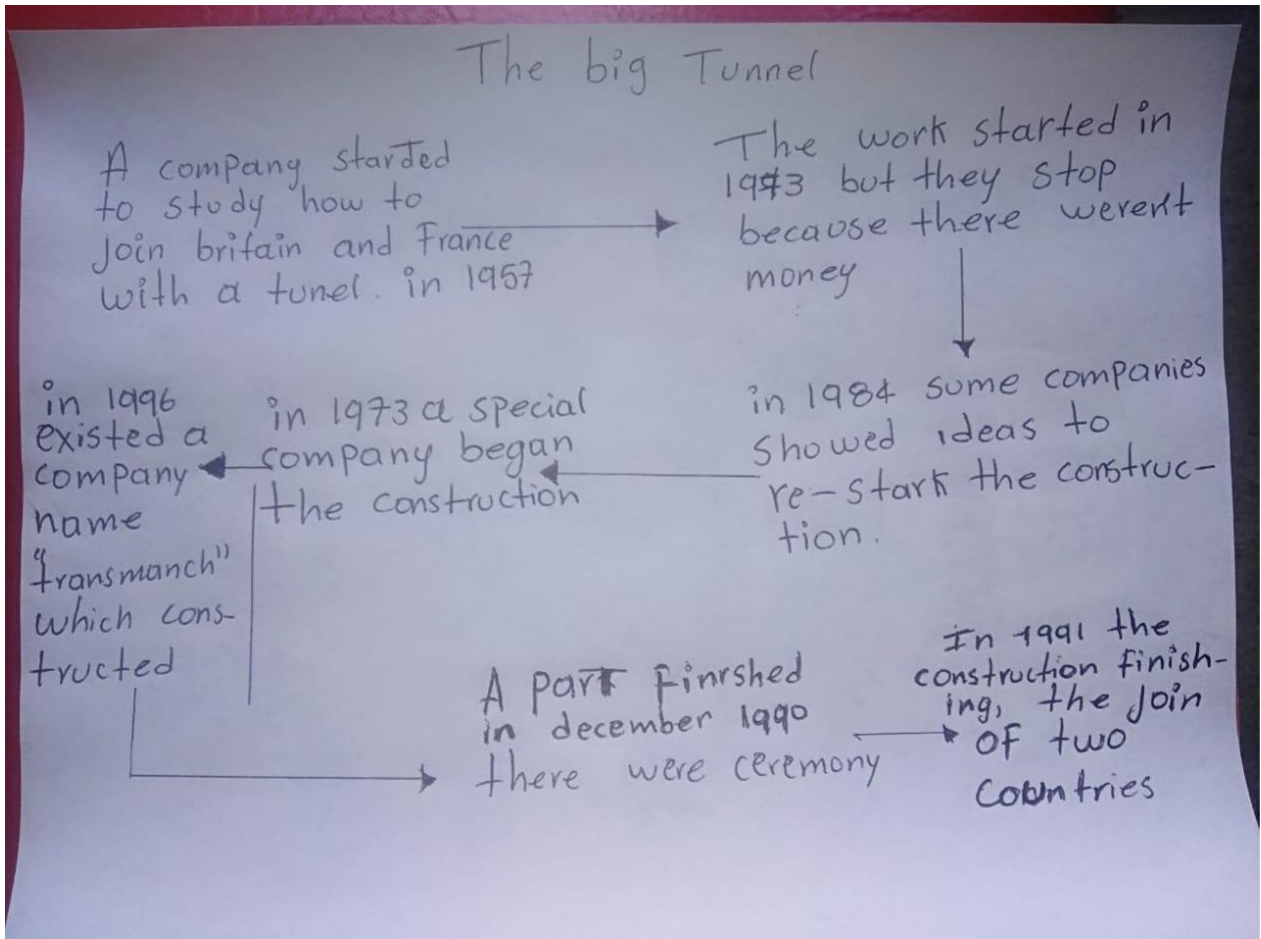 The big Tunnel
A company started
to study how to
join britain and France
with a tunel. in 1957
The work started in
1973 but they stop
because there weren't
money
in 1984 some companies
showed ideas to
re-start the construc-
tion.
in 1973 a special
company began
the construction
in 1996
existed a
company
name
"transmanch"
which cons-
tructed
A part finished
in december 1990
there were ceremony
In 1991 the
construction finish-
ing, the join
of two
countries